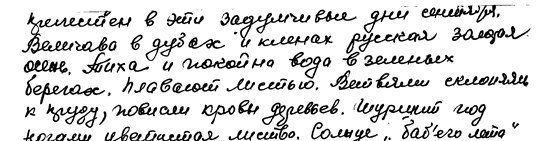 прелестен в эти задумчивые дни сентября.
Величаво в дубах и кленах русская золотая
осень. Тиха и покойна вода в зеленых
берегах. Плавают листья. Ветвями склоняясь
к пруду, повисли кроны деревьев. Шуршит под
ногами цветистая листва. Солнце „бабьего лета"